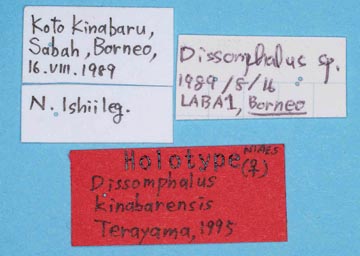 Koto Kinabaru,
Sabah, Borneo,
16. VIII. 1989
N. Ishii leg.
Dissomphalus sp.
1989/8/16
LABA1, Borneo
Holotype
NIAES
(♀)
Dissomphalus
kinabarensis
Terayama, 1995